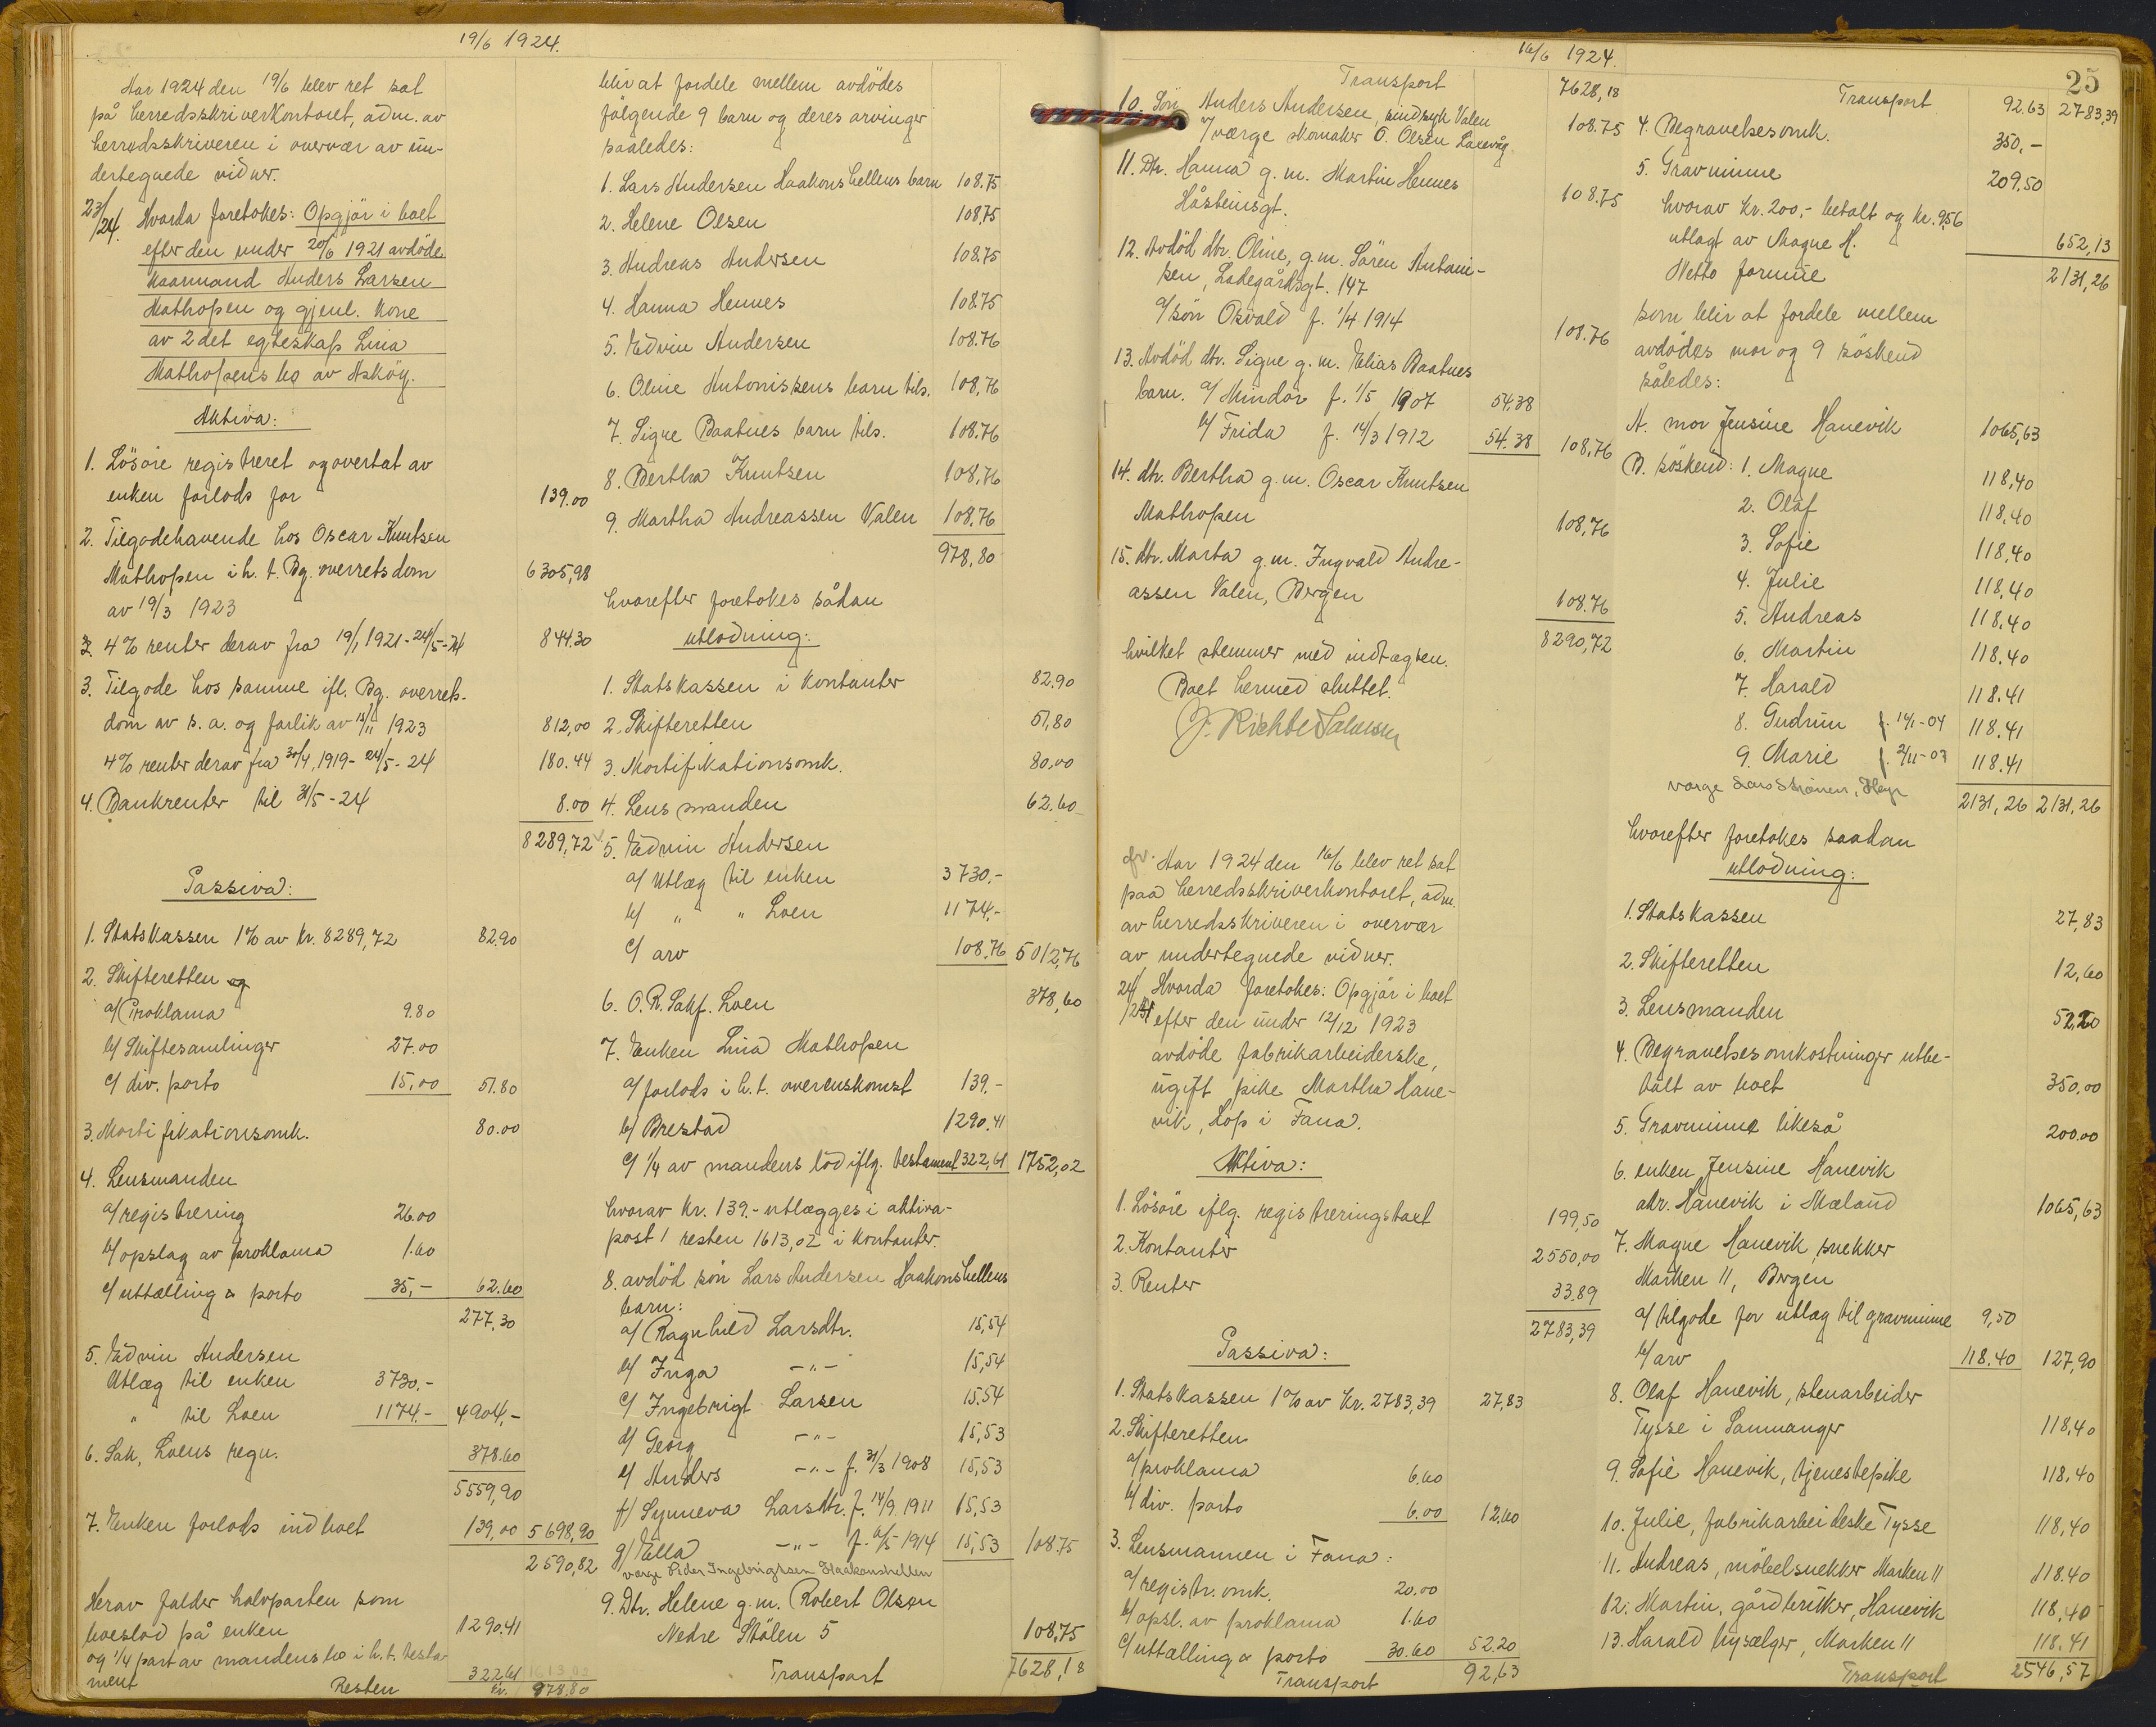 19/6 1924.
Aar 1924 den 19/6 blev ret sat
på herredsskriverkontoret, adm. av
herredsskriveren i overvær av un-
dertegnede vidner.
23/24. Hvorda foretokes: Opgjör i boet
efter den under 20/6 1921 avdöde
kaarmand Anders Larsen
Mathopen og gjenl. kone
av 2det egteskap Lina
Mathopens bo av Askøy.
Aktiva:
1. Lösöre registreret og overtat av
enken forlods for 139.00
2. Tilgodehavende hos Oscar Knutsen
Mathopen i h. t. Bg. overrets dom 6305,98
av 19/3 1923
3. 4% renter derav fra 19/1 1921 - 24/5-24 844.30
3. Tilgode hos samme ifl. Bg. overrets-
dom av s. a. og forlik av 15/11 1923 812,00
4% renter derav fra 30/4, 1919 - 24/5 - 24 180.44
4. Bankrenter til 31/5 - 24 8.00
8289,72
Passiva:
1. Statskassen 1% av kr. 8289,72 82.90
2. Skifteretten og
a/ Proklama 9.80
b/ Skiftesamlinger 27.00
c/ div. porto 15,00 51.80
3. Mortifikationsomk. 80.00
4. Lensmanden
a/ registrering 26.00
b/ opslag av proklama 1.60
c/ uttælling & porto 35,- 62.60
277,30
5. Edvin Andersen
Utlæg til enken 3730.-
" til Loen 1174.- 4904,-
6. Sak. Loens regn. 378.60
5559,90
7. Enken forlods ind boet 139,00 5698,90
2590,82
Herav falder halvparten som
boeslod på enken 1290.41
og 1/4 part av mandens bo i h. t. testa-
ment 322,61 1613,02
Resten kr. 978,80
blir at fordele mellem avdödes
fölgende 9 barn og deres arvinger
saaledes:
1. Lars Andersen Haakonshellens barn 108.75
2. Helene Olsen 108,75
3. Andreas Andersen 108.75
4. Hanna Hennes 108.75
5. Edvin Andersen 108.76
6. Oline Antonissens barn tils. 108,76
7. Signe Baatnes barn tils. 108.76
8. Bertha Knutsen 108,76
9. Martha Andreassen Valen 108.76
978,80
hvorefter foretokes sådan
utlodning:
1. Statskassen i kontanter 82.90
2. Skifteretten 51,80
3. Mortifikationsomk. 80,00
4. Lensmanden 62.60
5. Edvin Andersen
a/ Utlæg til enken 3730.-
b/ " " Loen 1174,-
c/ arv 108.76 5012,76
6. O. R. Sakf. Loen 378,60
7. Enken Lina Mathopen
a/ forlods i h. t. overenskomst 139.-
b/ Boeslod 1290.41
c/ 1/4 av mandens lod iflg. testament 322,61 1752,02
hvorav kr. 139.- utlægges i aktiva-
post 1 resten 1613,02 i kontanter.
8. avdöd sön Lars Andersen Haakonshellens
barn:
a/ Ragnhild Larsdtr. 15,54
b/ Inga -"- 15,54
c/ Ingebrigt Larsen 15.54
d/ Georg -"- 15,53
e/ Anders -"- f. 31/3 1908 15,53
f/ Synneva Larsdtr. f. 14/9 1911 15,53
g/ Ella -"- f. 6/5 1914 15,53 108.75
værge Peder Ingebrigtsen Haakonshellen
9. Dtr. Helene g. m. Robert Olsen
Nedre Stölen 5 108,75
Transport 7628,18
16/6 1924.
25
Transport 7628,18
10. Sön Anders Andersen, sindsyk Valen
/ værge skomaker O. Olsen Laxevåg 108.75
11. Dtr. Hanna g. m. Martin Hennes
Håsteinsgt. 108.75
12. Avdöd dtr. Oline, g. m. Sören Antoni-
sen, Ladegårdsgt. 147
a/ sön Osvald f. 1/4 1914 108.76
13. Avdöd dtr. Signe g. m. Elias Baatnes
barn. a/ Mindor f. 1/5 1907 54.38
b/ Frida f. 14/3 1912 54.38 108,76
14. dtr. Bertha g. m. Oscar Knutsen
Mathopen 108,76
15. dtr. Marta g. m. Ingvald Andre-
assen Valen, Bergen 108.76
8290,72
hvilket stemmer med indtægten.
Boet hermed sluttet.
Aar 1924 den 16/6 blev ret sat
paa herredsskriverkontoret, adm.
av herredsskriveren i overvær
av undertegnede vidner.
24/ Hvorda foretokes: Opgjör i boet
efter den under 12/12 1923
avdöde fabrikarbeiderske,
ugift pike Martha Hane-
vik, Hop i Fana.
Aktiva:
1. Lösöre iflg. registreringstakt 199,50
2. Kontanter 2550,00
3. Renter 33.89
2783,39
Passiva:
1. Statskassen 1% av kr. 2783,39 27,83
2. Skifteretten
a/ proklama 6.60
b/ div. porto 6.00 12,60
3. Lensmannen i Fana:
a/ registr. omk. 20.00
b/ opsl. av proklama 1.60
c/ uttælling & porto 30.60 52.20
Transport 92,63
Transport 92.63 2783,39
4. Begravelsesomk. 350.-
5. Gravminne 209.50
hvorav kr. 200,- betalt og kr. 9,56
utlagt av Magne H. 652,13
Netto formue 2131,26
som blir at fordele mellem
avdödes mor og 9 söskend
således:
A. mor Jensine Hanevik 1065,63
B. söskend: 1. Magne 118,40
2. Olaf 118,40
3. Sofie 118,40
4. Julie 118,40
5. Andreas 118,40
6. Martin 118.40
7. Harald 118.41
8. Gudrun f. 14/1-04 118.41
9. Marie f. 2/11-07 118.41
2131,26 2131,26
hvorefter foretokes saadan
utlodning:
1. Statskassen 27,83
2. Skifteretten 12,60
3. Lensmanden 52,20
4. Begravelsesomkostninger utbe-
talt av boet 350,00
5. Gravminne likeså 200.00
6. enken Jensine Hanevik
adr. Hanevik i Mæland 1065,63
7. Magne Hanevik, snekker
Marken 11, Bergen
a/ tilgode for utlæg til gravminne 9,50
b/ arv 118.40 127,90
8. Olaf Hanevik, stenarbeider
Tysse i Samnanger 118,40
9. Sofie Hanevik, tjenestepike 118,40
10. Julie, fabrikarbeideske Tysse 118,40
11. Andreas, möbelsnekker Marken 11 118.40
12. Martin, gårdbruker, Hanevik 118,40
13. Harald avisælger, Marken 11 118.41
Transport 2546,57